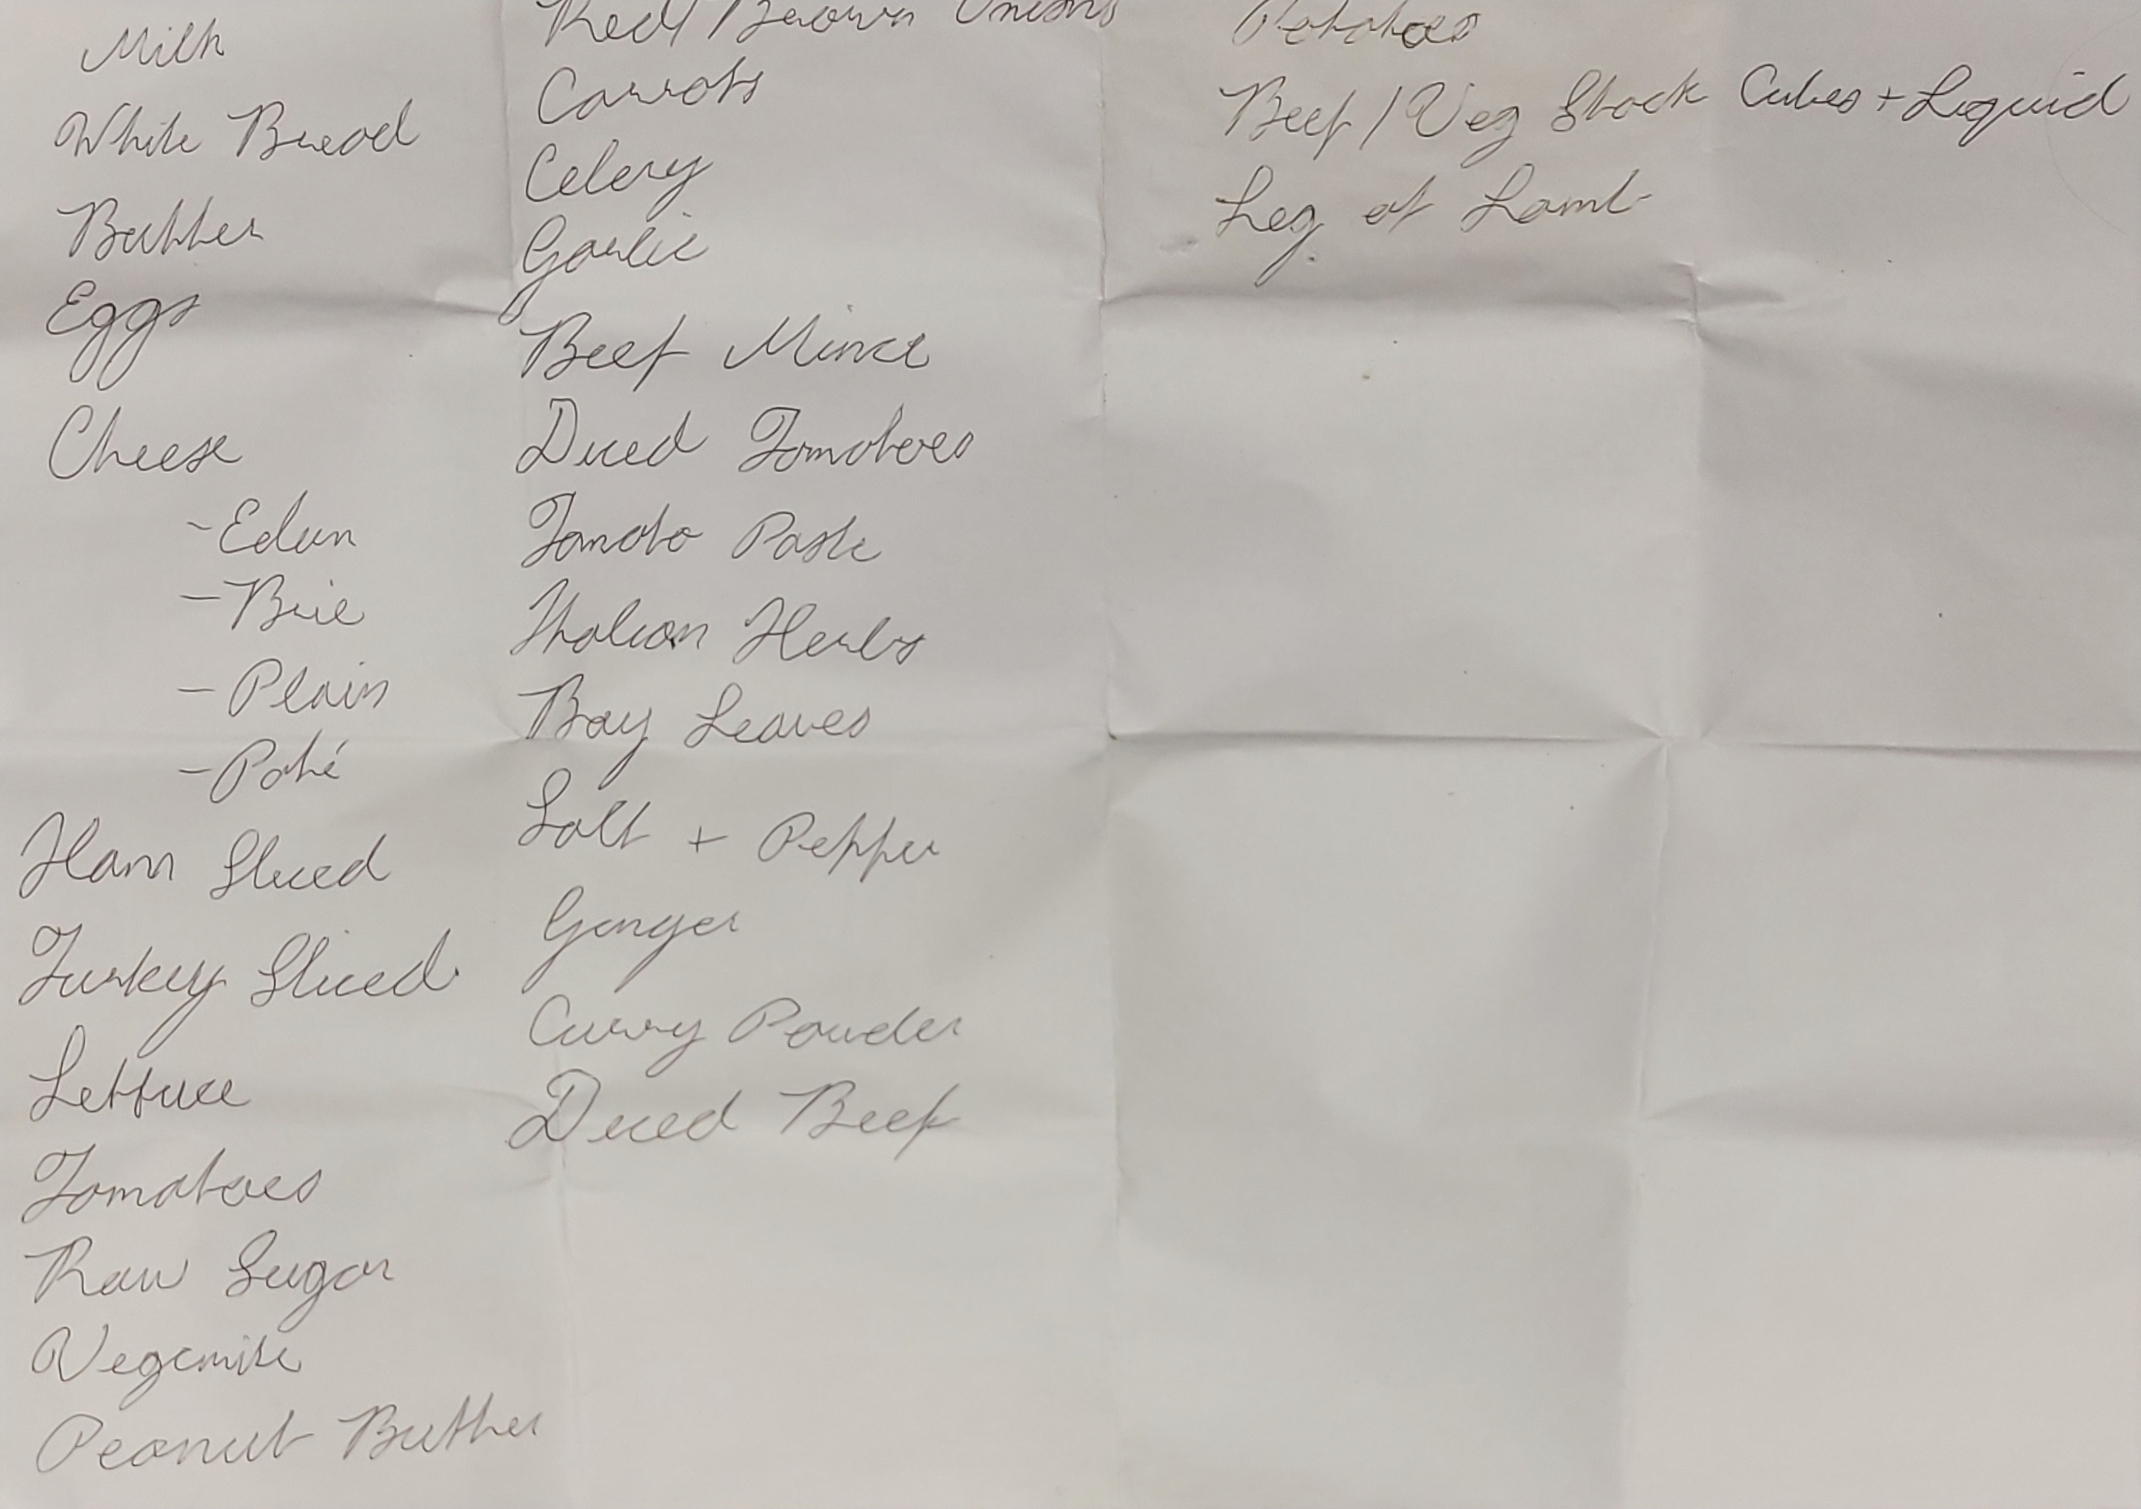 Milk
White Bread
Butter
Eggs
Cheese
-Edam
-Brie
-Plain
-Pâté
Ham Sliced
Turkey Sliced
Lettuce
Tomatoes
Raw Sugar
Vegemite
Peanut Butter
Red/Brown Onions
Carrots
Celery
Garlic
Beef Mince
Diced Tomatoes
Tomato Paste
Italian Herbs
Bay Leaves
Salt + Pepper
Ginger
Curry Powder
Diced Beef
Potatoes
Beef/Veg Stock Cubes + Liquid
Leg of Lamb